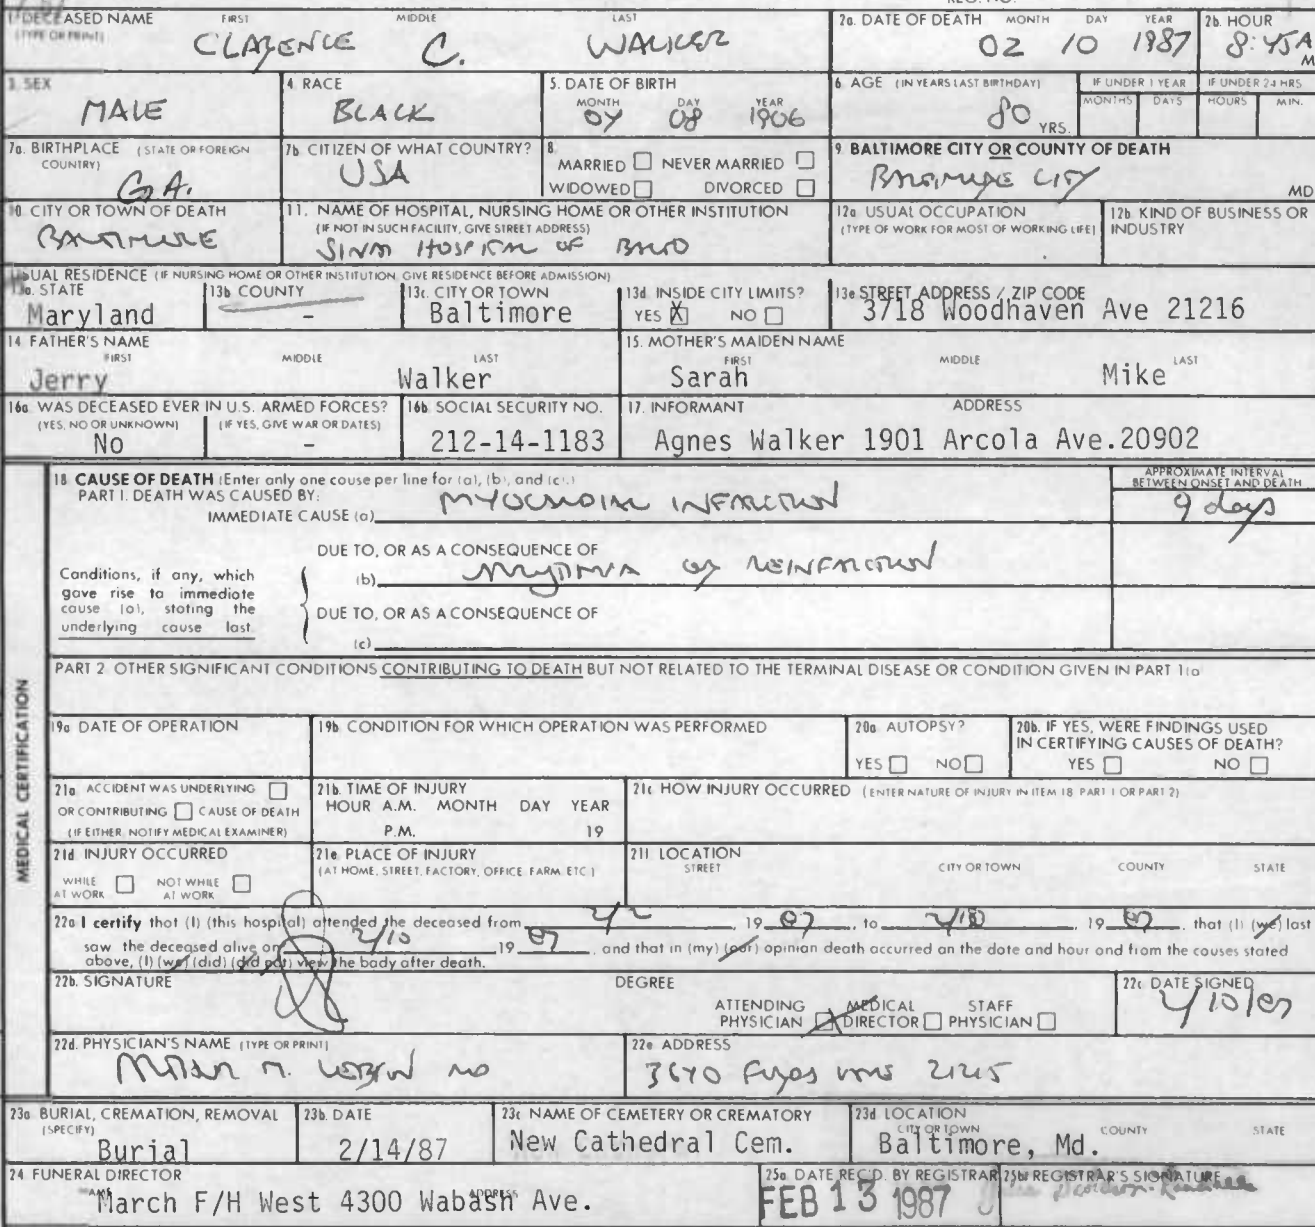 REG. NO.
1. DECEASED NAME FIRST MIDDLE LAST
(TYPE OR PRINT)
CLARENCE C. WALKER
2a. DATE OF DEATH MONTH DAY YEAR
02 10 1987
2b. HOUR
8:45A M
3. SEX
MALE
4. RACE
BLACK
5. DATE OF BIRTH
MONTH DAY YEAR
08 1906
6. AGE (IN YEARS LAST BIRTHDAY)
80 YRS.
IF UNDER 1 YEAR
MONTHS DAYS
IF UNDER 24 HRS
HOURS MIN.
7a. BIRTHPLACE (STATE OR FOREIGN
COUNTRY)
GA.
7b. CITIZEN OF WHAT COUNTRY?
USA
8.
MARRIED NEVER MARRIED
WIDOWED DIVORCED
9. BALTIMORE CITY OR COUNTY OF DEATH
BALTIMORE CITY
MD
10. CITY OR TOWN OF DEATH
BALTIMORE
11. NAME OF HOSPITAL, NURSING HOME OR OTHER INSTITUTION
(IF NOT IN SUCH FACILITY, GIVE STREET ADDRESS)
SINAI HOSPITAL OF BALTO
12a. USUAL OCCUPATION
(TYPE OF WORK FOR MOST OF WORKING LIFE)
12b. KIND OF BUSINESS OR
INDUSTRY
USUAL RESIDENCE (IF NURSING HOME OR OTHER INSTITUTION, GIVE RESIDENCE BEFORE ADMISSION)
13a. STATE
Maryland
13b. COUNTY
-
13c. CITY OR TOWN
Baltimore
13d. INSIDE CITY LIMITS?
YES X NO
13e. STREET ADDRESS / ZIP CODE
3718 Woodhaven Ave 21216
14. FATHER'S NAME
FIRST MIDDLE LAST
Jerry Walker
15. MOTHER'S MAIDEN NAME
FIRST MIDDLE LAST
Sarah Mike
16a. WAS DECEASED EVER IN U.S. ARMED FORCES?
(YES, NO OR UNKNOWN) (IF YES, GIVE WAR OR DATES)
No -
16b. SOCIAL SECURITY NO.
212-14-1183
17. INFORMANT ADDRESS
Agnes Walker 1901 Arcola Ave.20902
MEDICAL CERTIFICATION
18. CAUSE OF DEATH (Enter only one cause per line for (a), (b), and (c).)
PART I. DEATH WAS CAUSED BY:
IMMEDIATE CAUSE (a) MYOCARDIAL INFARCTION
APPROXIMATE INTERVAL
BETWEEN ONSET AND DEATH
9 days
DUE TO, OR AS A CONSEQUENCE OF
(b) REINFARCTION
Conditions, if any, which
gave rise to immediate
cause (a), stating the
underlying cause last.
DUE TO, OR AS A CONSEQUENCE OF
(c)
PART 2. OTHER SIGNIFICANT CONDITIONS CONTRIBUTING TO DEATH BUT NOT RELATED TO THE TERMINAL DISEASE OR CONDITION GIVEN IN PART 1(a
19a. DATE OF OPERATION
19b. CONDITION FOR WHICH OPERATION WAS PERFORMED
20a. AUTOPSY?
YES NO
20b. IF YES, WERE FINDINGS USED
IN CERTIFYING CAUSES OF DEATH?
YES NO
21a. ACCIDENT WAS UNDERLYING
OR CONTRIBUTING CAUSE OF DEATH
(IF EITHER, NOTIFY MEDICAL EXAMINER)
21b. TIME OF INJURY
HOUR A.M. MONTH DAY YEAR
P.M. 19
21c. HOW INJURY OCCURRED (ENTER NATURE OF INJURY IN ITEM 18 PART 1 OR PART 2)
21d. INJURY OCCURRED
WHILE AT WORK NOT WHILE AT WORK
21e. PLACE OF INJURY
(AT HOME, STREET, FACTORY, OFFICE, FARM, ETC.)
21f. LOCATION
STREET CITY OR TOWN COUNTY STATE
22a. I certify that (I) (this hospital) attended the deceased from 2/2, 19 87, to 2/10, 19 87, that (I) (we) last
saw the deceased alive on 2/10 19 87, and that in (my) (our) opinion death occurred on the date and hour and from the causes stated
above, (I) (we) (did) (did not) view the body after death.
22b. SIGNATURE DEGREE
ATTENDING PHYSICIAN MEDICAL DIRECTOR STAFF PHYSICIAN
22c. DATE SIGNED
2/10/87
22d. PHYSICIAN'S NAME (TYPE OR PRINT)
M. MD
22e. ADDRESS
3640 21215
23a. BURIAL, CREMATION, REMOVAL
(SPECIFY)
Burial
23b. DATE
2/14/87
23c. NAME OF CEMETERY OR CREMATORY
New Cathedral Cem.
23d. LOCATION
CITY OR TOWN COUNTY STATE
Baltimore, Md.
24. FUNERAL DIRECTOR
NAME ADDRESS
March F/H West 4300 Wabash Ave.
25a. DATE REC'D. BY REGISTRAR
FEB 13 1987
25b. REGISTRAR'S SIGNATURE